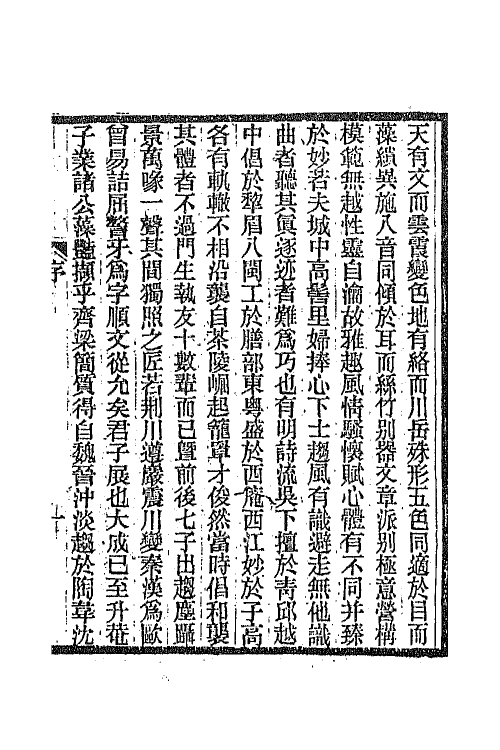 天有文而雲霞變色地有絡而川岳殊形五色同適於目而
藻繢異施八音同傾於耳而絲竹別器文章派別極意營構
模範無越性靈自淪故雅趣風情騷懷賦心體有不同并臻
於妙若夫城中高髻里婦捧心下士趨風有識避走無他識
曲者聽其眞逐迹者難爲巧也有明詩流吳下擅於靑邱越
中倡於犂眉八閩工於膳部東粤盛於西庵西江妙於子高
各有軌轍不相沿襲自茶陵崛起籠罩才俊然當時倡和襲
其體者不過門生執友十數輩而已曁前後七子出趨塵躡
景萬喙一聲其間獨照之匠若荆川遵巖震川變秦漢爲歐
曾易詰屈聱牙爲字順文從允矣君子展也大成已至升菴
子業諸公藻豔擷乎齊梁簡質得自魏晉沖淡趨於陶韋沈
序